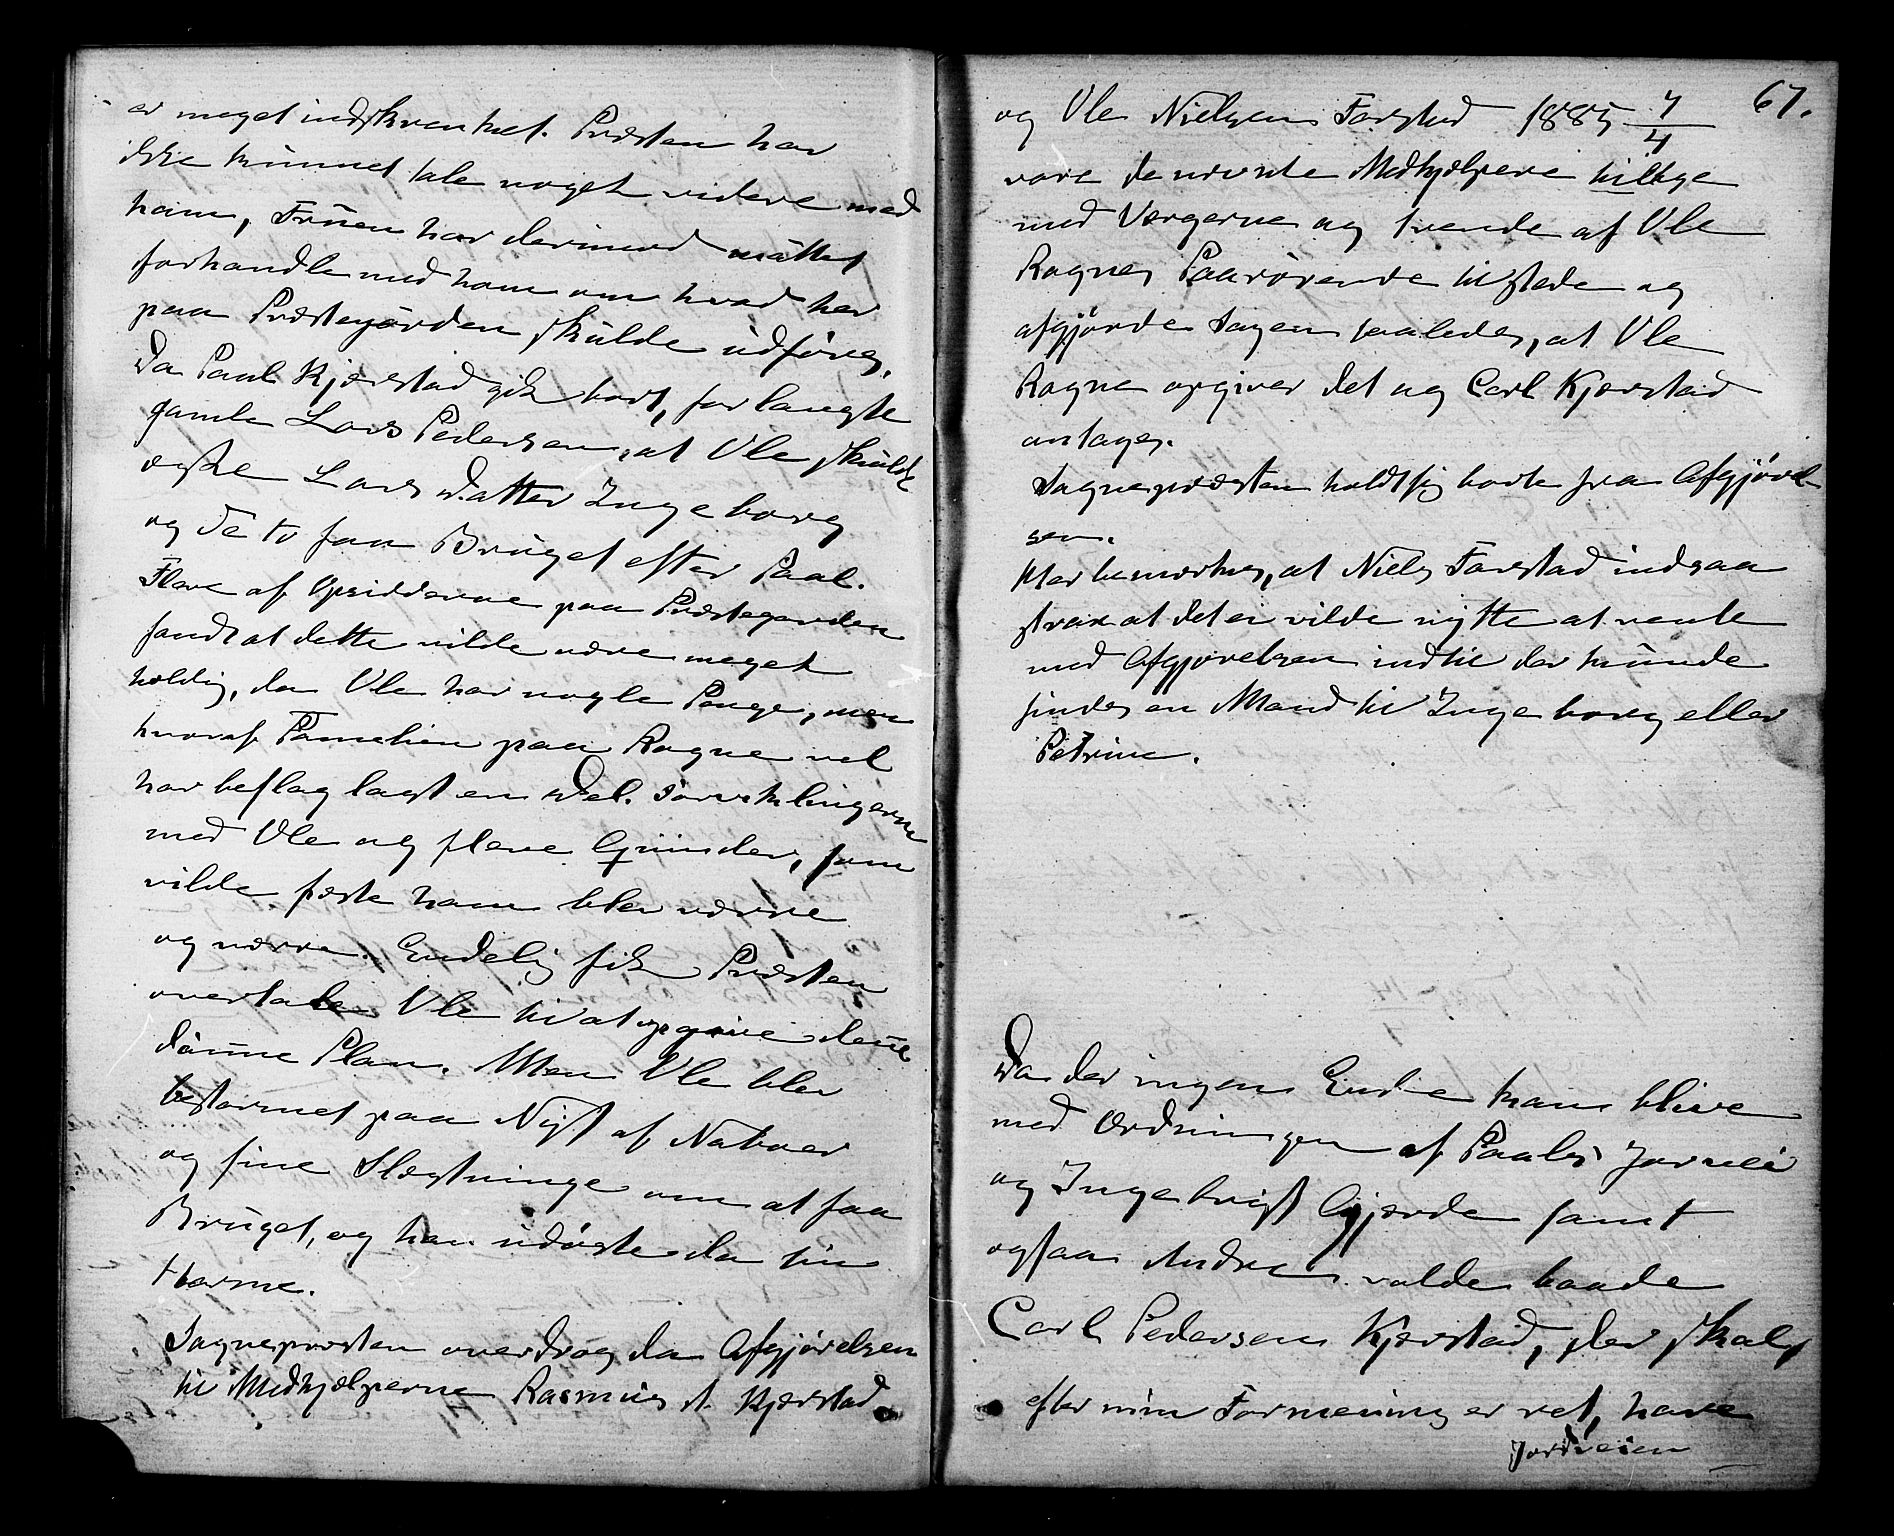 er meget indskrænket. Præsten har
ikke kunnet tale noget videre med
ham, Fruen har derimod måttet
forhandle med ham om hvad her
paa Præstegården skulde udføres.
Da Paal Kjørstad gik bort, forlangte
gamle Lars Pedersen, at Ole skulde
ægte Lars Datter Ingeborg
og de to faa Bruget efter Paal.
Flere af Opsidderne paa Præstegarden
fandt at dette vilde være meget
heldig, da Ole har nogle Penge, men
hvoraf Familien paa Rogne vel
har beslaglagt en Del. Forviklingerne
med Ole og flere Qvinder, som
vilde fæste ham blev værre
og værre. Endelig fik Præsten
overtale Ole til at opgive denne
dumme Plan. Men Ole blev
bestormet paa Nyt af Naboer
og sine Slægtninge om at faa
Bruget, og han udøste da sin
Harme.
Sognepresten overdrog da Afgjørelsen
til Medhjælperne Rasmus A. Kjørstad
67.
og Ole Nielsen Farstad 1885 7/4
vare de nævnte Medhjælpere tillige
med Vergerne og tvende af Ole
Rognes Paarørende tilstede og
afgjørde Sagen saaledes, at Ole
Rogne opgiver det og Carl Kjørstad
antages.
Sognepræsten holdt sig borte fra Afgjørel-
sen.
Her bemærkes, at Niels Farstad indsaa
strax at det ei vilde nytte at vente
med Afgjørelsen indtil der kunde
findes en Mand til Ingeborg eller
Petrine.
Da der ingen Ende kan blive
med Ordningen af Paals Jorvei
og Ingebrigt Gjerde samt
ogsaa Andre. valde baade
Carl Pedersen Kjørstad, der skal
efter min Formening er ret, have
Jordveien